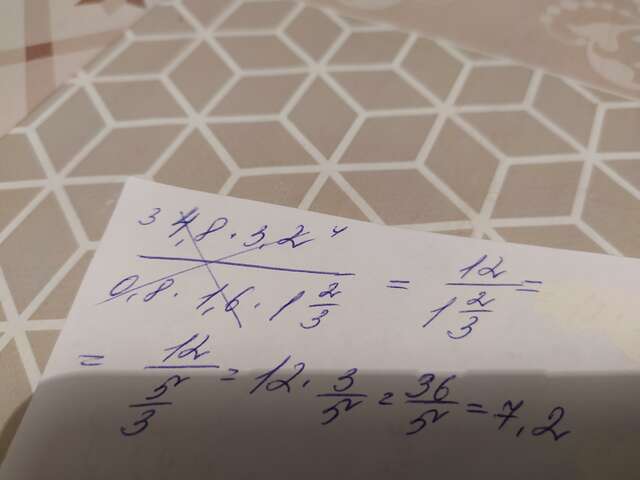 3 4,8 · 3,2 4
0,8 · 1,6 · 1 2/3 = 12 / 1 2/3 =
= 12 / 5/3 = 12 · 3/5 = 36/5 = 7,2